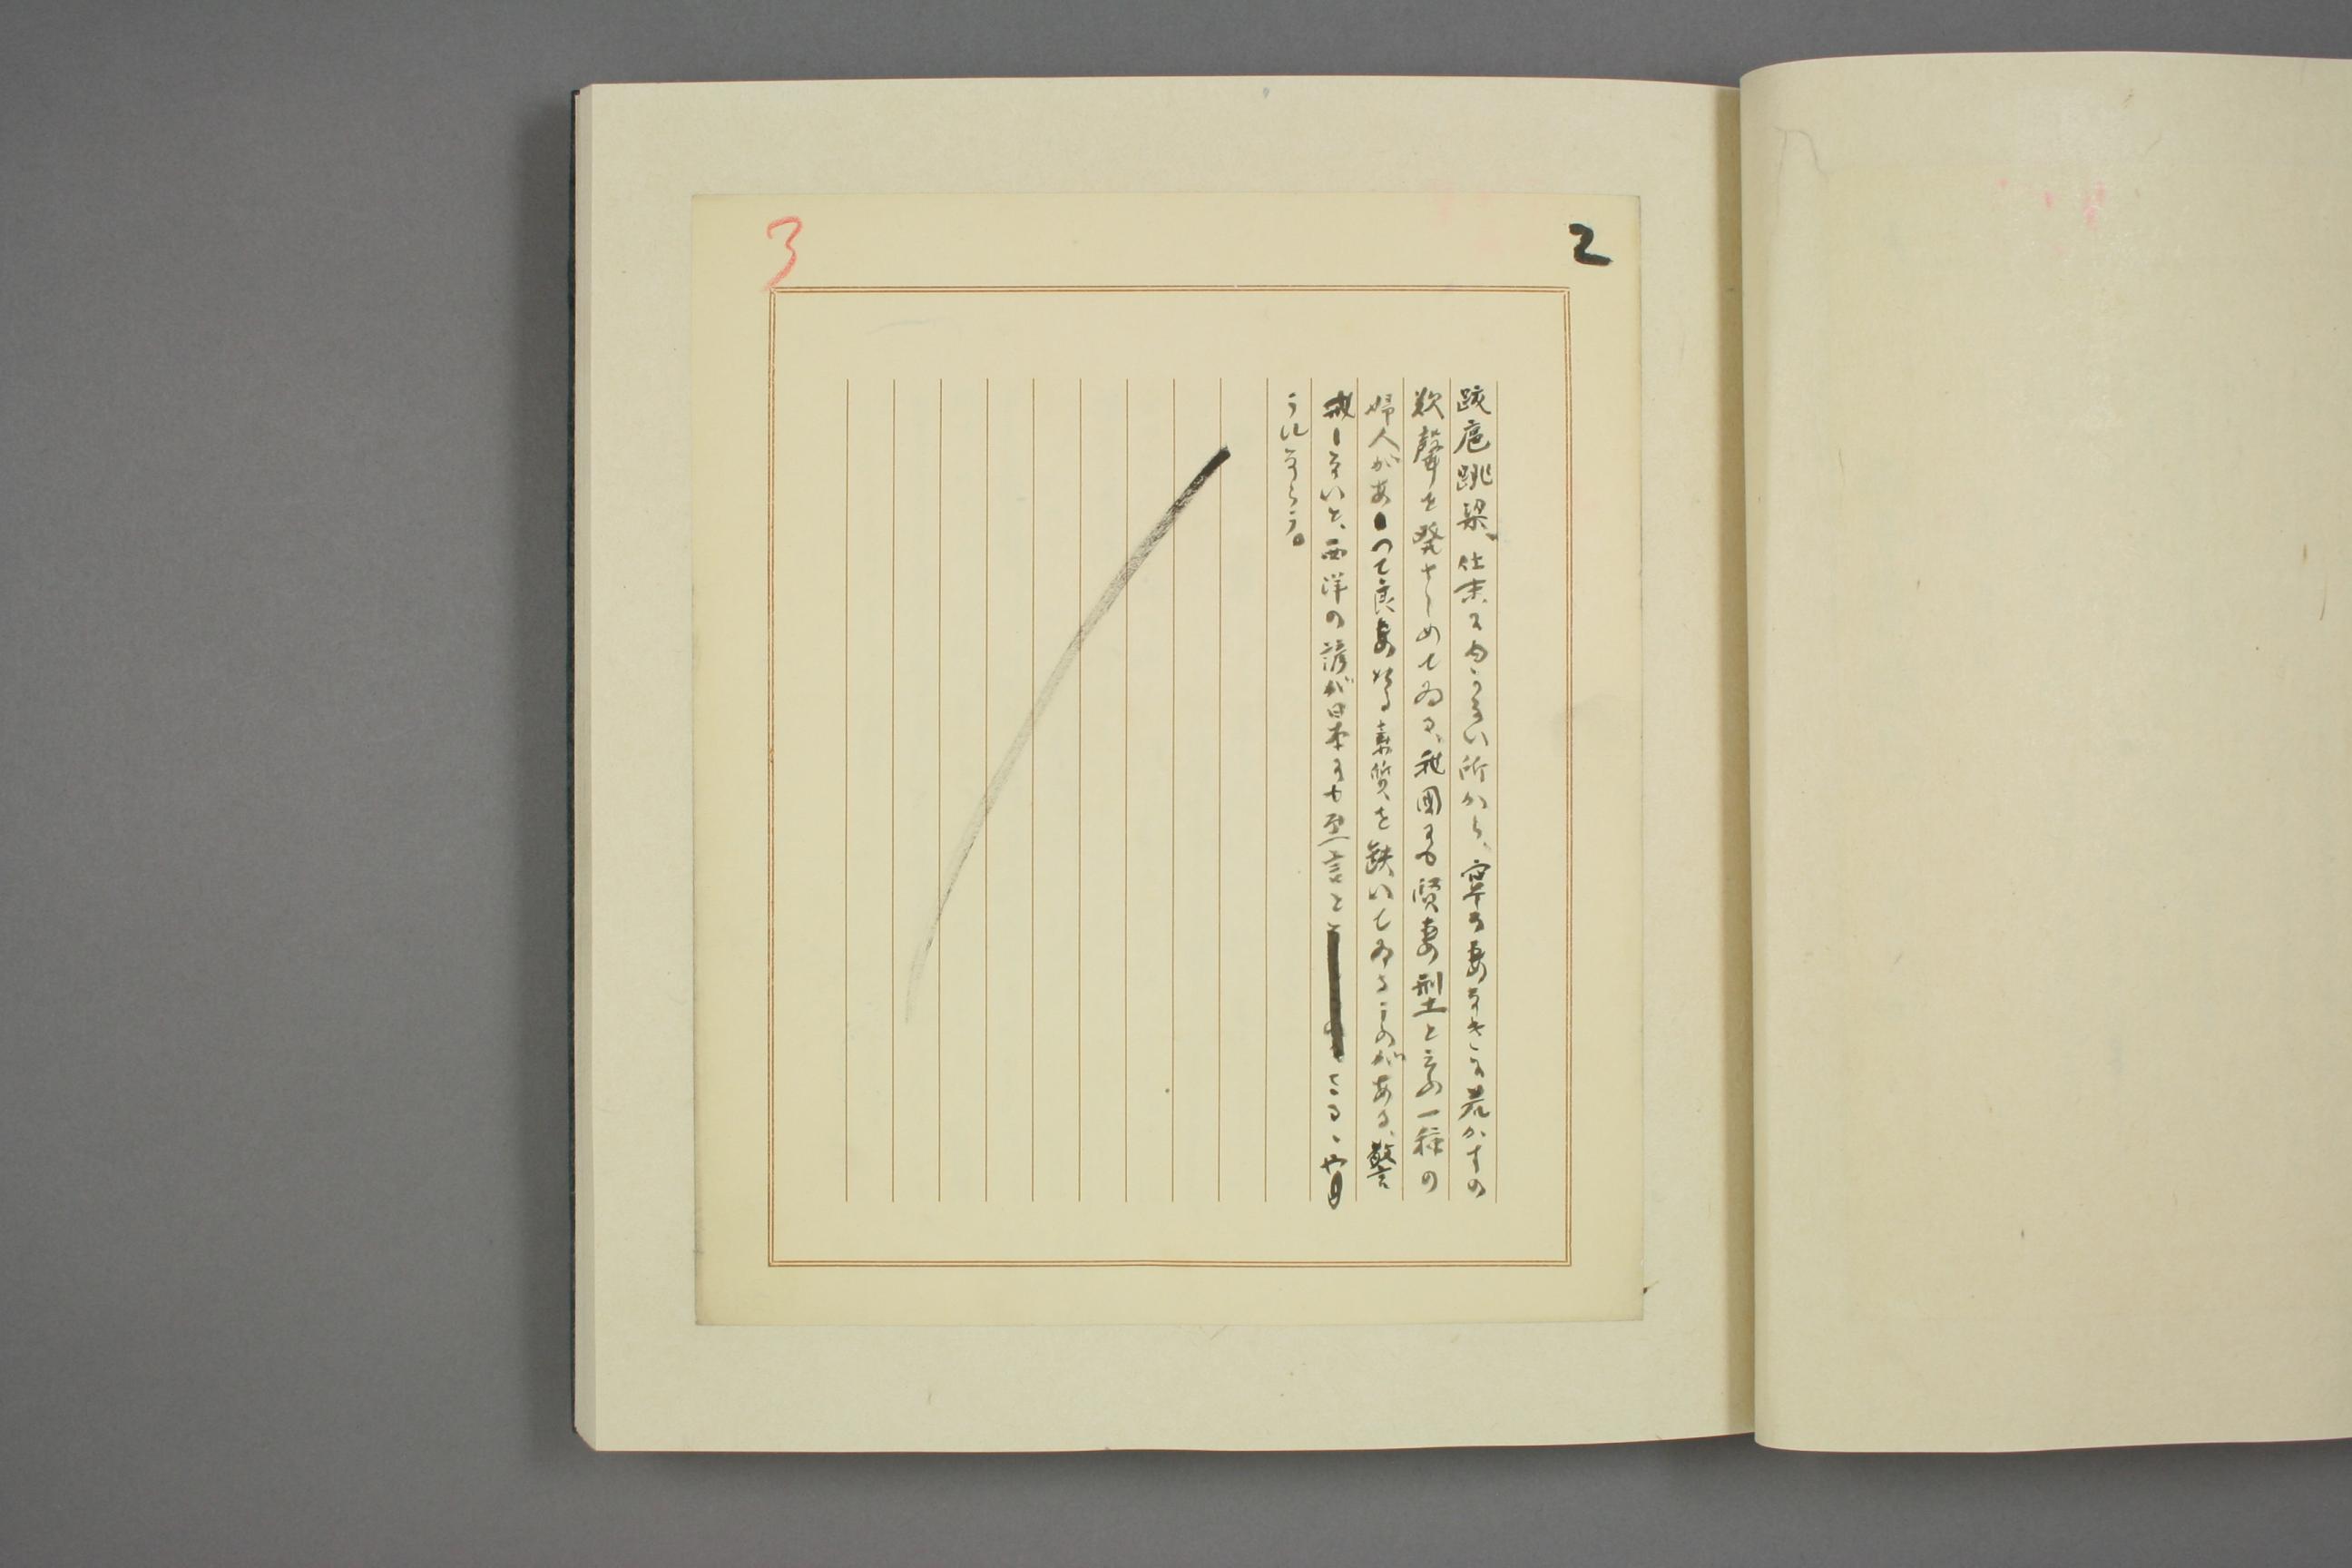 2
3
跋扈跳梁、仕末にをへない所から、寧ろ妻なきに若かずの
歎聲を発せしめてゐる、我国にも賢妻型と云ふ一種の
婦人があつて良妻たる素質を缺いてゐることがある、警
戒しないと、西洋の諺が日本にも至言と なる、
うにならう。